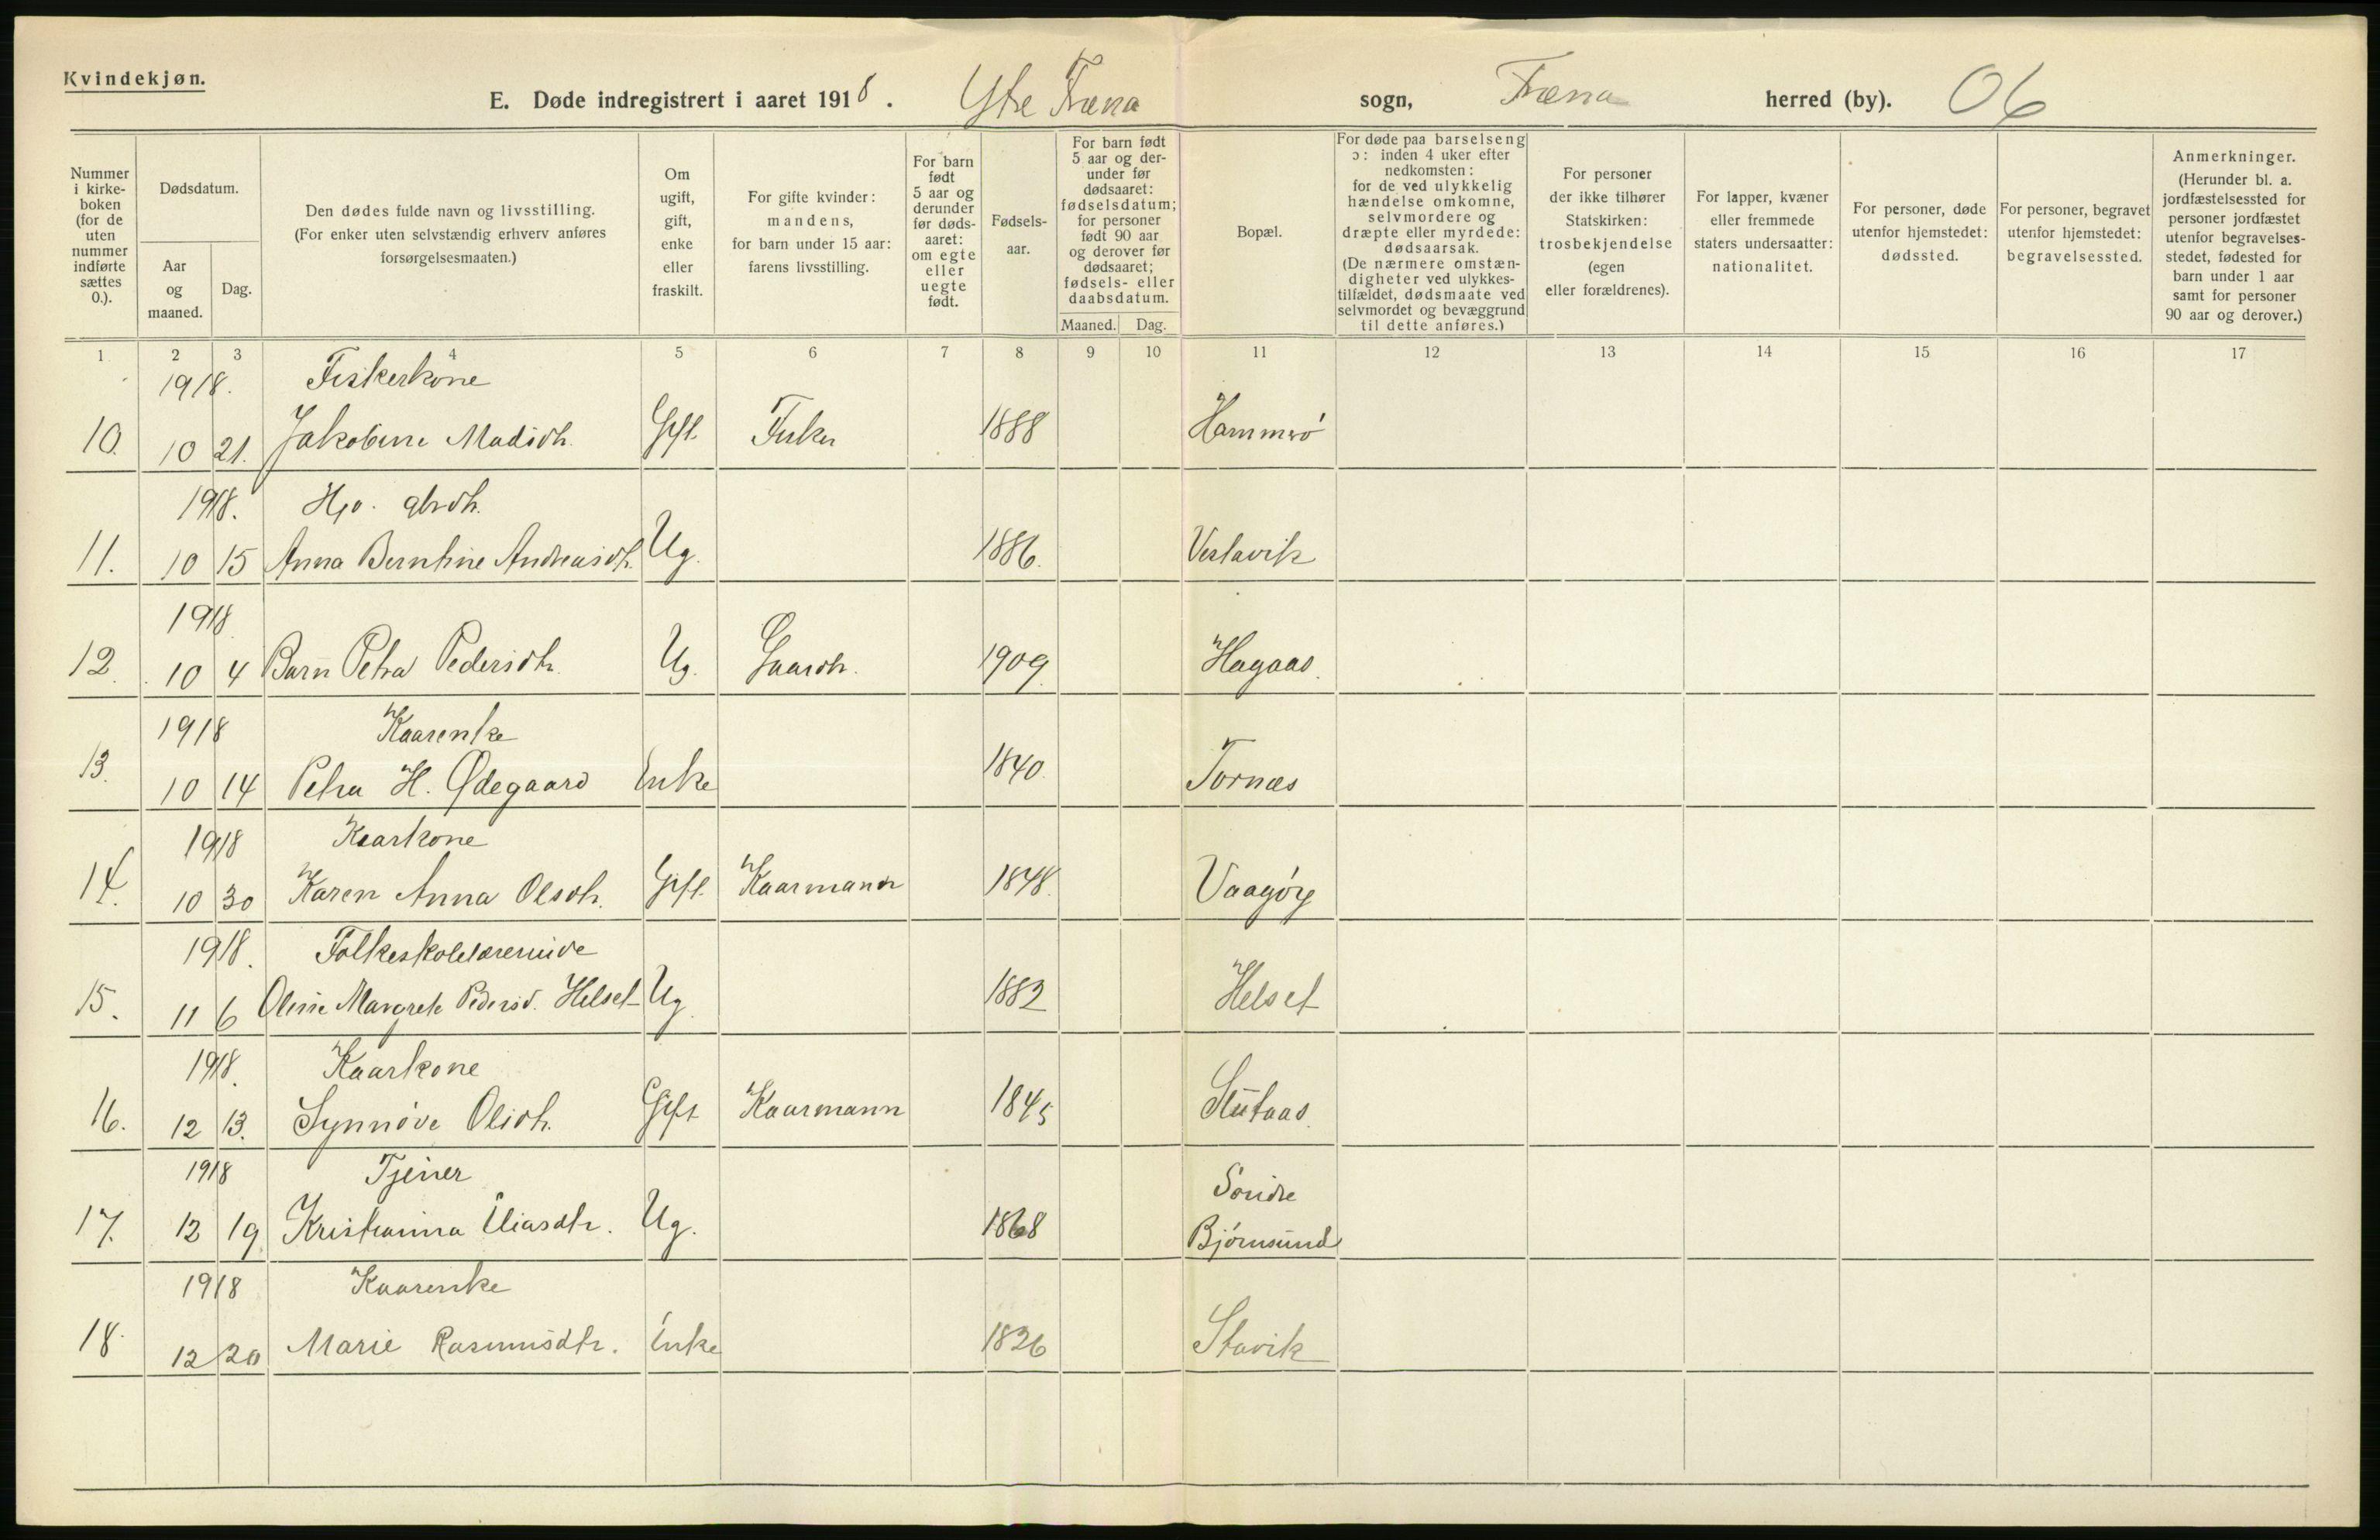 Kvindekjøn.
E. Døde indregistrert i aaret 1918. Ytre Fræna sogn, Fræna herred (by). 06
Nummer i kirkeboken (for de uten nummer indførte sættes 0.).
Dødsdatum.
Aar og maaned.
Dag.
Den dødes fulde navn og livsstilling. (For enker uten selvstændig erhverv anføres forsørgelsesmaaten.)
Om ugift, gift, enke eller fraskilt.
For gifte kvinder: mandens, for barn under 15 aar: farens livsstilling.
For barn født 5 aar og derunder før dødsaaret: om egte eller uegte født.
Fødselsaar.
For barn født 5 aar og derunder før dødsaaret: fødselsdatum; for personer født 90 aar og derover før dødsaaret; fødsels- eller daabsdatum.
Maaned. Dag.
Bopæl.
For døde paa barselseng ɔ: inden 4 uker efter nedkomsten: for de ved ulykkelig hændelse omkomne, selvmordere og dræpte eller myrdede: dødsaarsak. (De nærmere omstændigheter ved ulykkestilfældet, dødsmaate ved selvmordet og bevæggrund til dette anføres.)
For personer der ikke tilhører Statskirken: trosbekjendelse (egen eller forældrenes).
For lapper, kvæner eller fremmede staters undersaatter: nationalitet.
For personer, døde utenfor hjemstedet: dødssted.
For personer, begravet utenfor hjemstedet: begravelsessted.
Anmerkninger. (Herunder bl. a. jordfæstelsessted for personer jordfæstet utenfor begravelsesstedet, fødested for barn under 1 aar samt for personer 90 aar og derover.)
1 2 3 4 5 6 7 8 9 10 11 12 13 14 15 16 17
1918. Fiskerkone
10. 10 21. Jakobine Madsdtr. Gift Fisker 1888 Hammerø
1918. Hjv. gbrdtr.
11. 10 15 Anna Berntine Andreasdtr. Ug. 1886. Vestavik
1918
12. 10 4 Barn Petra Pedersdtr. Ug. Gaardbr. 1909. Hagaas.
1918 Kaarenke
13. 10 14 Petra H. Ødegaard Enke 1840. Tornæs
1918 Kaarkone
14. 10 30 Karen Anna Olsdtr. Gift Kaarmann 1848. Vaagøy
1918. Folkeskolelærerinde
15. 11 6 Oline Margrete Pedersd. Helset Ug. 1882 Helset
1918. Kaarkone
16. 12 13. Synnöve Olsdtr. Gift Kaarmann 1845 Stutaas.
1918 Tjener Söndre
17. 12 19 Kristianna Eliasdtr. Ug. 1868 Bjórnsund
1918 Kaarenke
18. 12 20 Marie Rasmusdtr. Enke 1826 Stavik